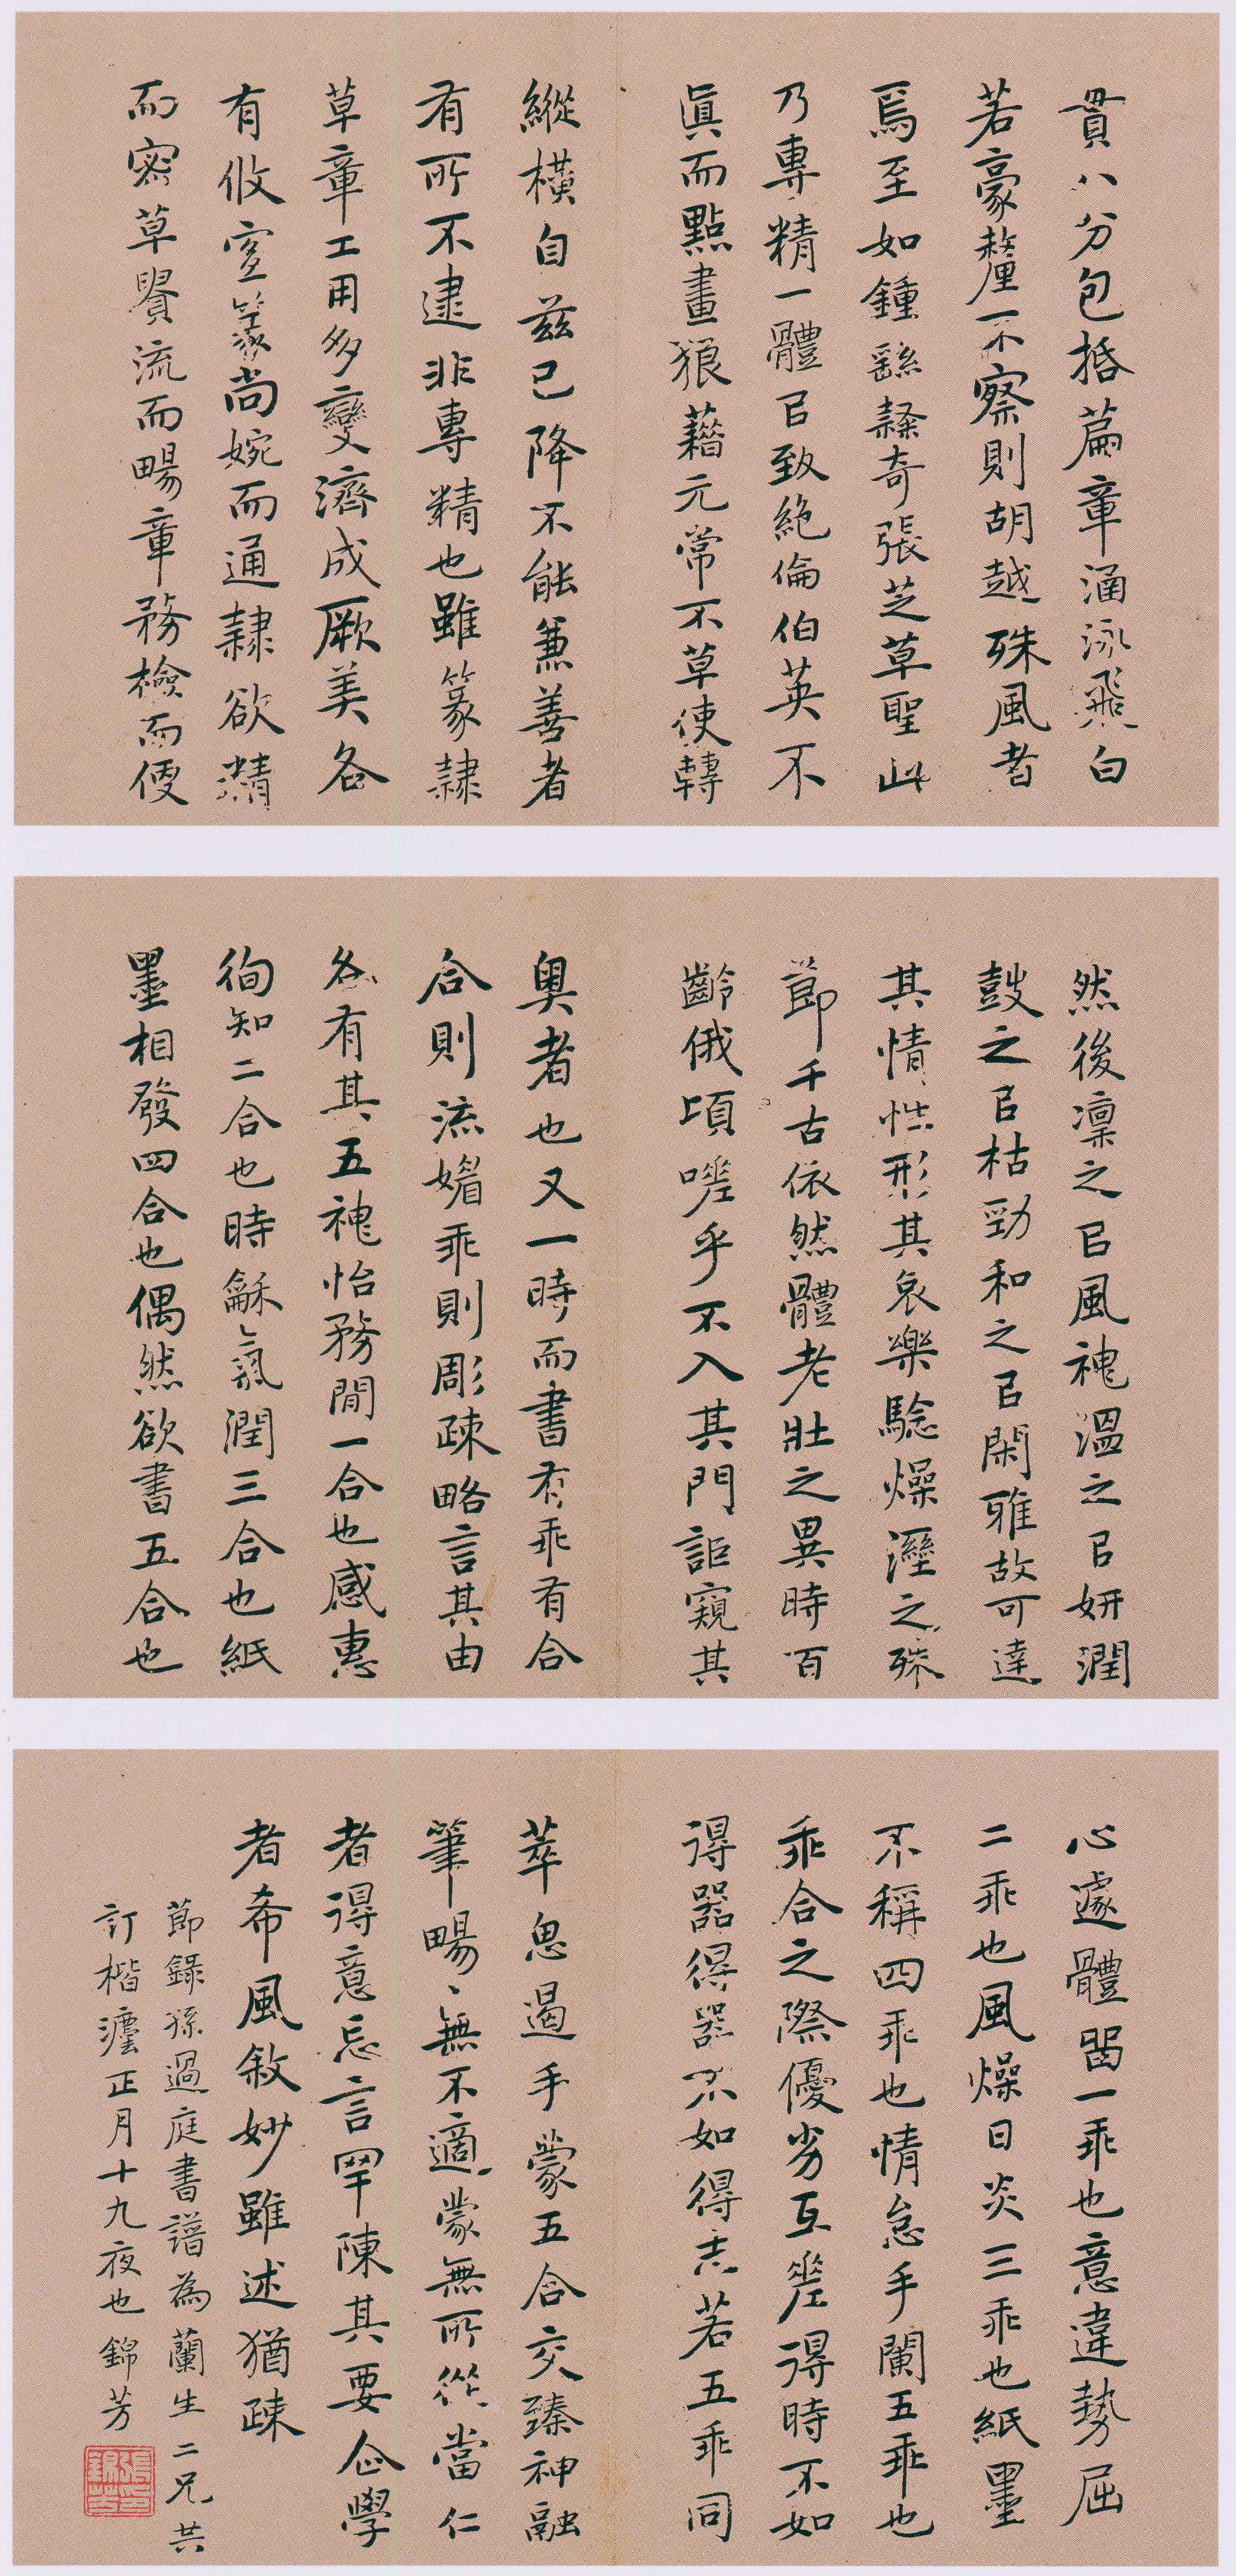 貫八分包括篇章涵泳飛白
若豪釐不察則胡越殊風者
焉至如鍾繇隸奇張芝草聖此
乃專精一體㠯致絶倫伯英不
眞而點畫狼藉元常不草使轉
縱橫自兹已降不能兼善者
有所不逮非專精也雖篆隸
草章工用多變濟成厥美各
有攸宜篆尚婉而通隸欲精
而密草貴流而暢章務檢而便
然後凜之㠯風神溫之㠯妍潤
鼓之㠯枯勁和之㠯閑雅故可達
其情性形其哀樂驗燥溼之殊
節千古依然體老壯之異時百
齡俄頃嗟乎不入其門詎窺其
奥者也又一時而書有乖有合
合則流媚乖則彫疎略言其由
各有其五神怡務閒一合也感惠
徇知二合也時龢氣潤三合也紙
墨相發四合也偶然欲書五合也
心遽體留一乖也意違勢屈
二乖也風燥日炎三乖也紙墨
不稱四乖也情怠手闌五乖也
乖合之際優劣互差得時不如
得器得器不如得志若五乖同
萃思遏手蒙五合交臻神融
筆暢暢無不適蒙無所從當仁
者得意忘言罕陳其要企學
者希風敘妙雖述猶疎
節錄孫過庭書譜為蘭生二兄共
訂楷瀍正月十九夜也錦芳
張錦芳